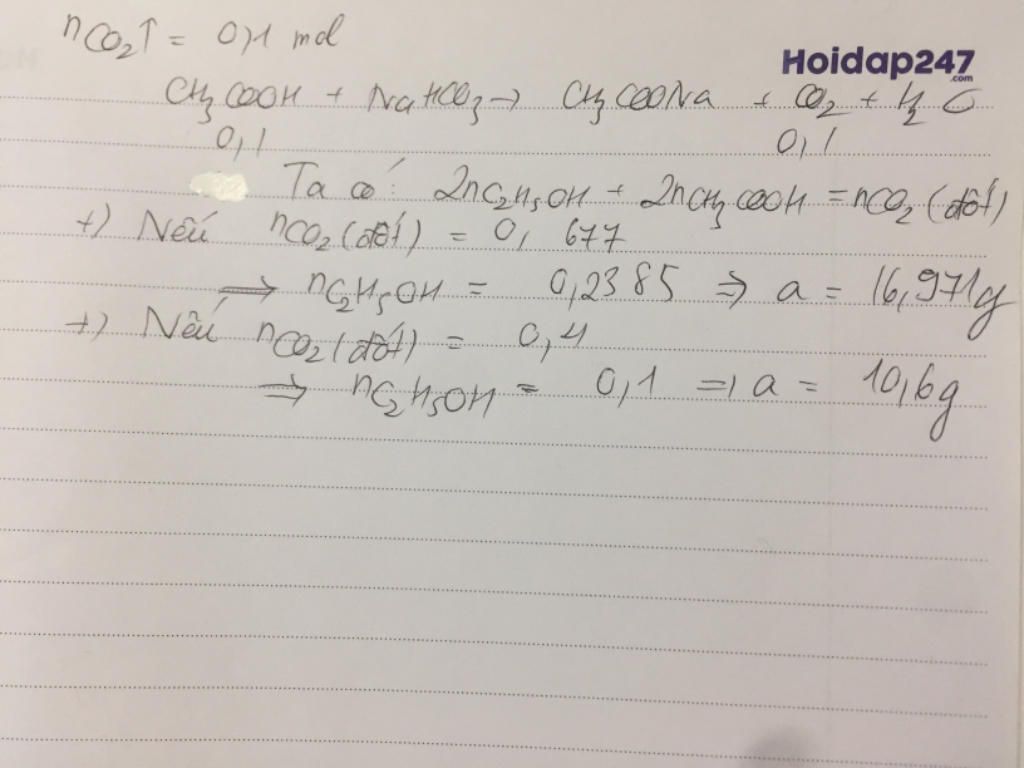 nCO2↑ = 0,1 mol
Hoidap247
.com
CH3COOH + NaHCO3 → CH3COONa + CO2 + H2O
0,1 0,1
Ta có: 2nC2H5OH + 2nCH3COOH = nCO2 (đốt)
+) Nếu nCO2 (đốt) = 0,677
⇒ nC2H5OH = 0,2385 ⇒ a = 16,971g
+) Nếu nCO2 (đốt) = 0,4
⇒ nC2H5OH = 0,1 ⇒ a = 10,6g